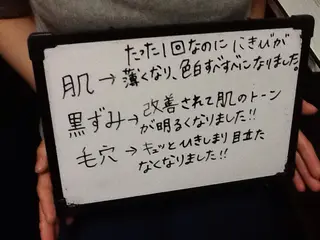 たった1回なのににきびが
肌→薄くなり、色白すべすべになりました。
黒ずみ→改善されて肌のトーン
が明るくなりました!!
毛穴→キュッとひきしまり目立た
なくなりました!!